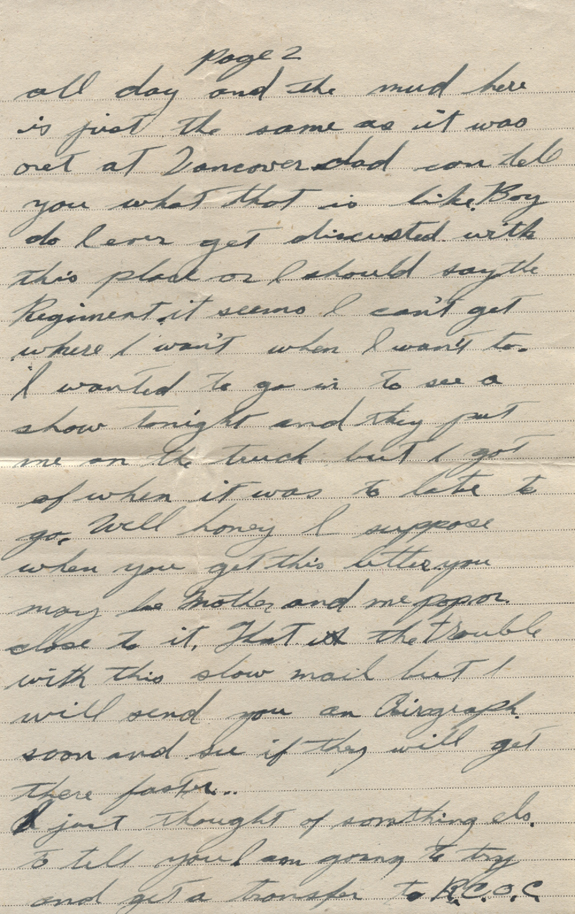 page 2
all day and the mud here
is just the same as it was
out at Vancover dad can tell
you what that is like. Boy
do I ever get discusted with
this place or I should say the
Regiment, it seems I can't get
where I wan't when I wan't to.
I wanted to go in to see a
show tonight and they put
me on the truck but I got
of when it was to late to
go. Well honey I suppose
when you get this letter you
may be Mother and me popor
close to it. That is the trouble
with this slow mail but I
will send you an Airgraph
soon and see if they will get
there faster..
I just thought of something els.
to tell you I am going to try
and get a transfer to R.C.O.C.